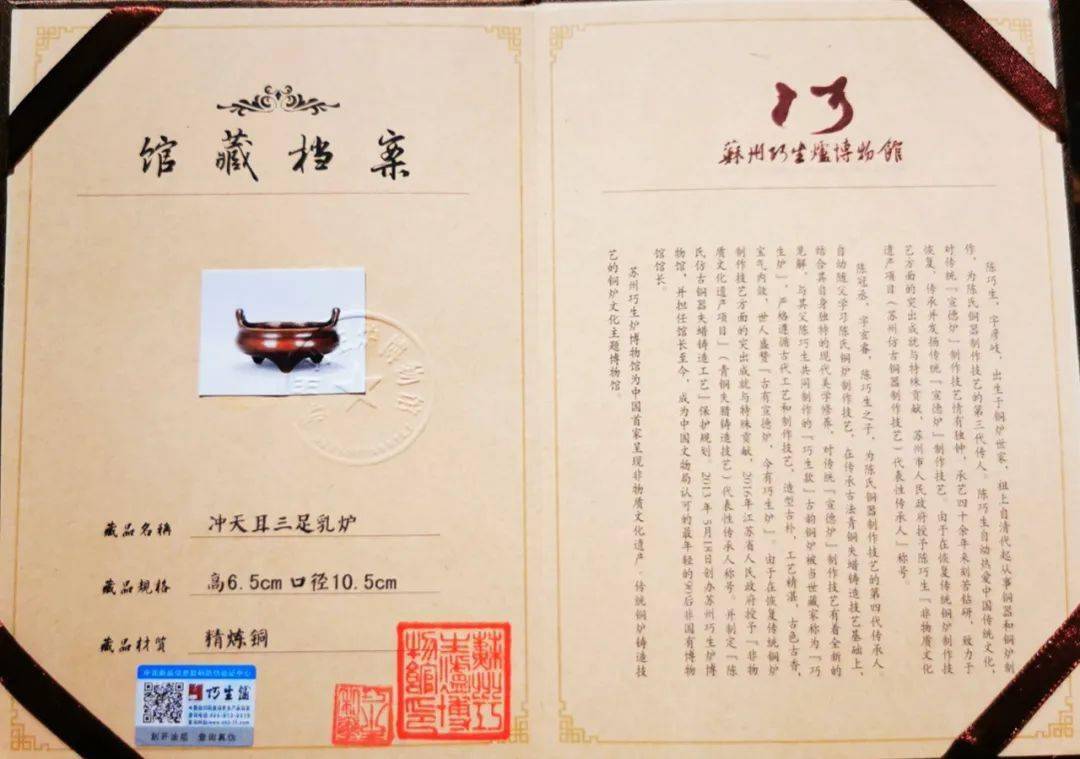 馆藏档案
藏品名稱 冲天耳三足乳炉
藏品规格 高6.5cm 口径10.5cm
藏品材质 精炼铜
巧生爐
刮开涂层 查询真伪
蘇州巧生爐博物館
陈巧生，字彦岐，出生于铜炉世家，祖上自清代起从事铜器和铜炉制
作，为陈氏铜器制作技艺的第三代传人。陈巧生自幼热爱中国传统文化，
对传统『宣德炉』制作技艺情有独钟，承艺四十余年来刻苦钻研，致力于
恢复、传承并发扬传统『宣德炉』制作技艺。由于在恢复传统铜炉制作技
艺方面的突出成就与特殊贡献，苏州市人民政府授予陈巧生『非物质文化
遗产项目（苏州仿古铜器制作技艺）代表性传承人』称号。
陈冠丞，字玄睿，陈巧生之子，为陈氏铜器制作技艺的第四代传承人
自幼随父学习陈氏铜炉制作技艺，在传承古法青铜失蜡铸造技艺基础上，
结合其自身独特的现代美学修养，对传统『宣德炉』制作技艺有着全新的
见解，与其父陈巧生共同制作的『巧生款』古韵铜炉被当世藏家称为『巧
生炉』，严格遵循古代工艺和制作技艺，造型古朴，工艺精湛，古色古香，
宝气内敛，世人盛赞『古有宣德炉，今有巧生炉』。由于在恢复传统铜炉
制作技艺方面的突出成就与特殊贡献，2016年江苏省人民政府授予『非物
质文化遗产项目』（青铜失腊铸造技艺）代表性传承人称号。并制定『陈
氏仿古铜器失蜡铸造工艺』保护规划。2013年5月18日创办苏州巧生炉博
物馆，并担任馆长至今，成为中国文物局认可的最年轻的90后非国有博物
馆馆长。
苏州巧生炉博物馆为中国首家呈现非物质文化遗产、传统铜炉铸造技
艺的铜炉文化主题博物馆。